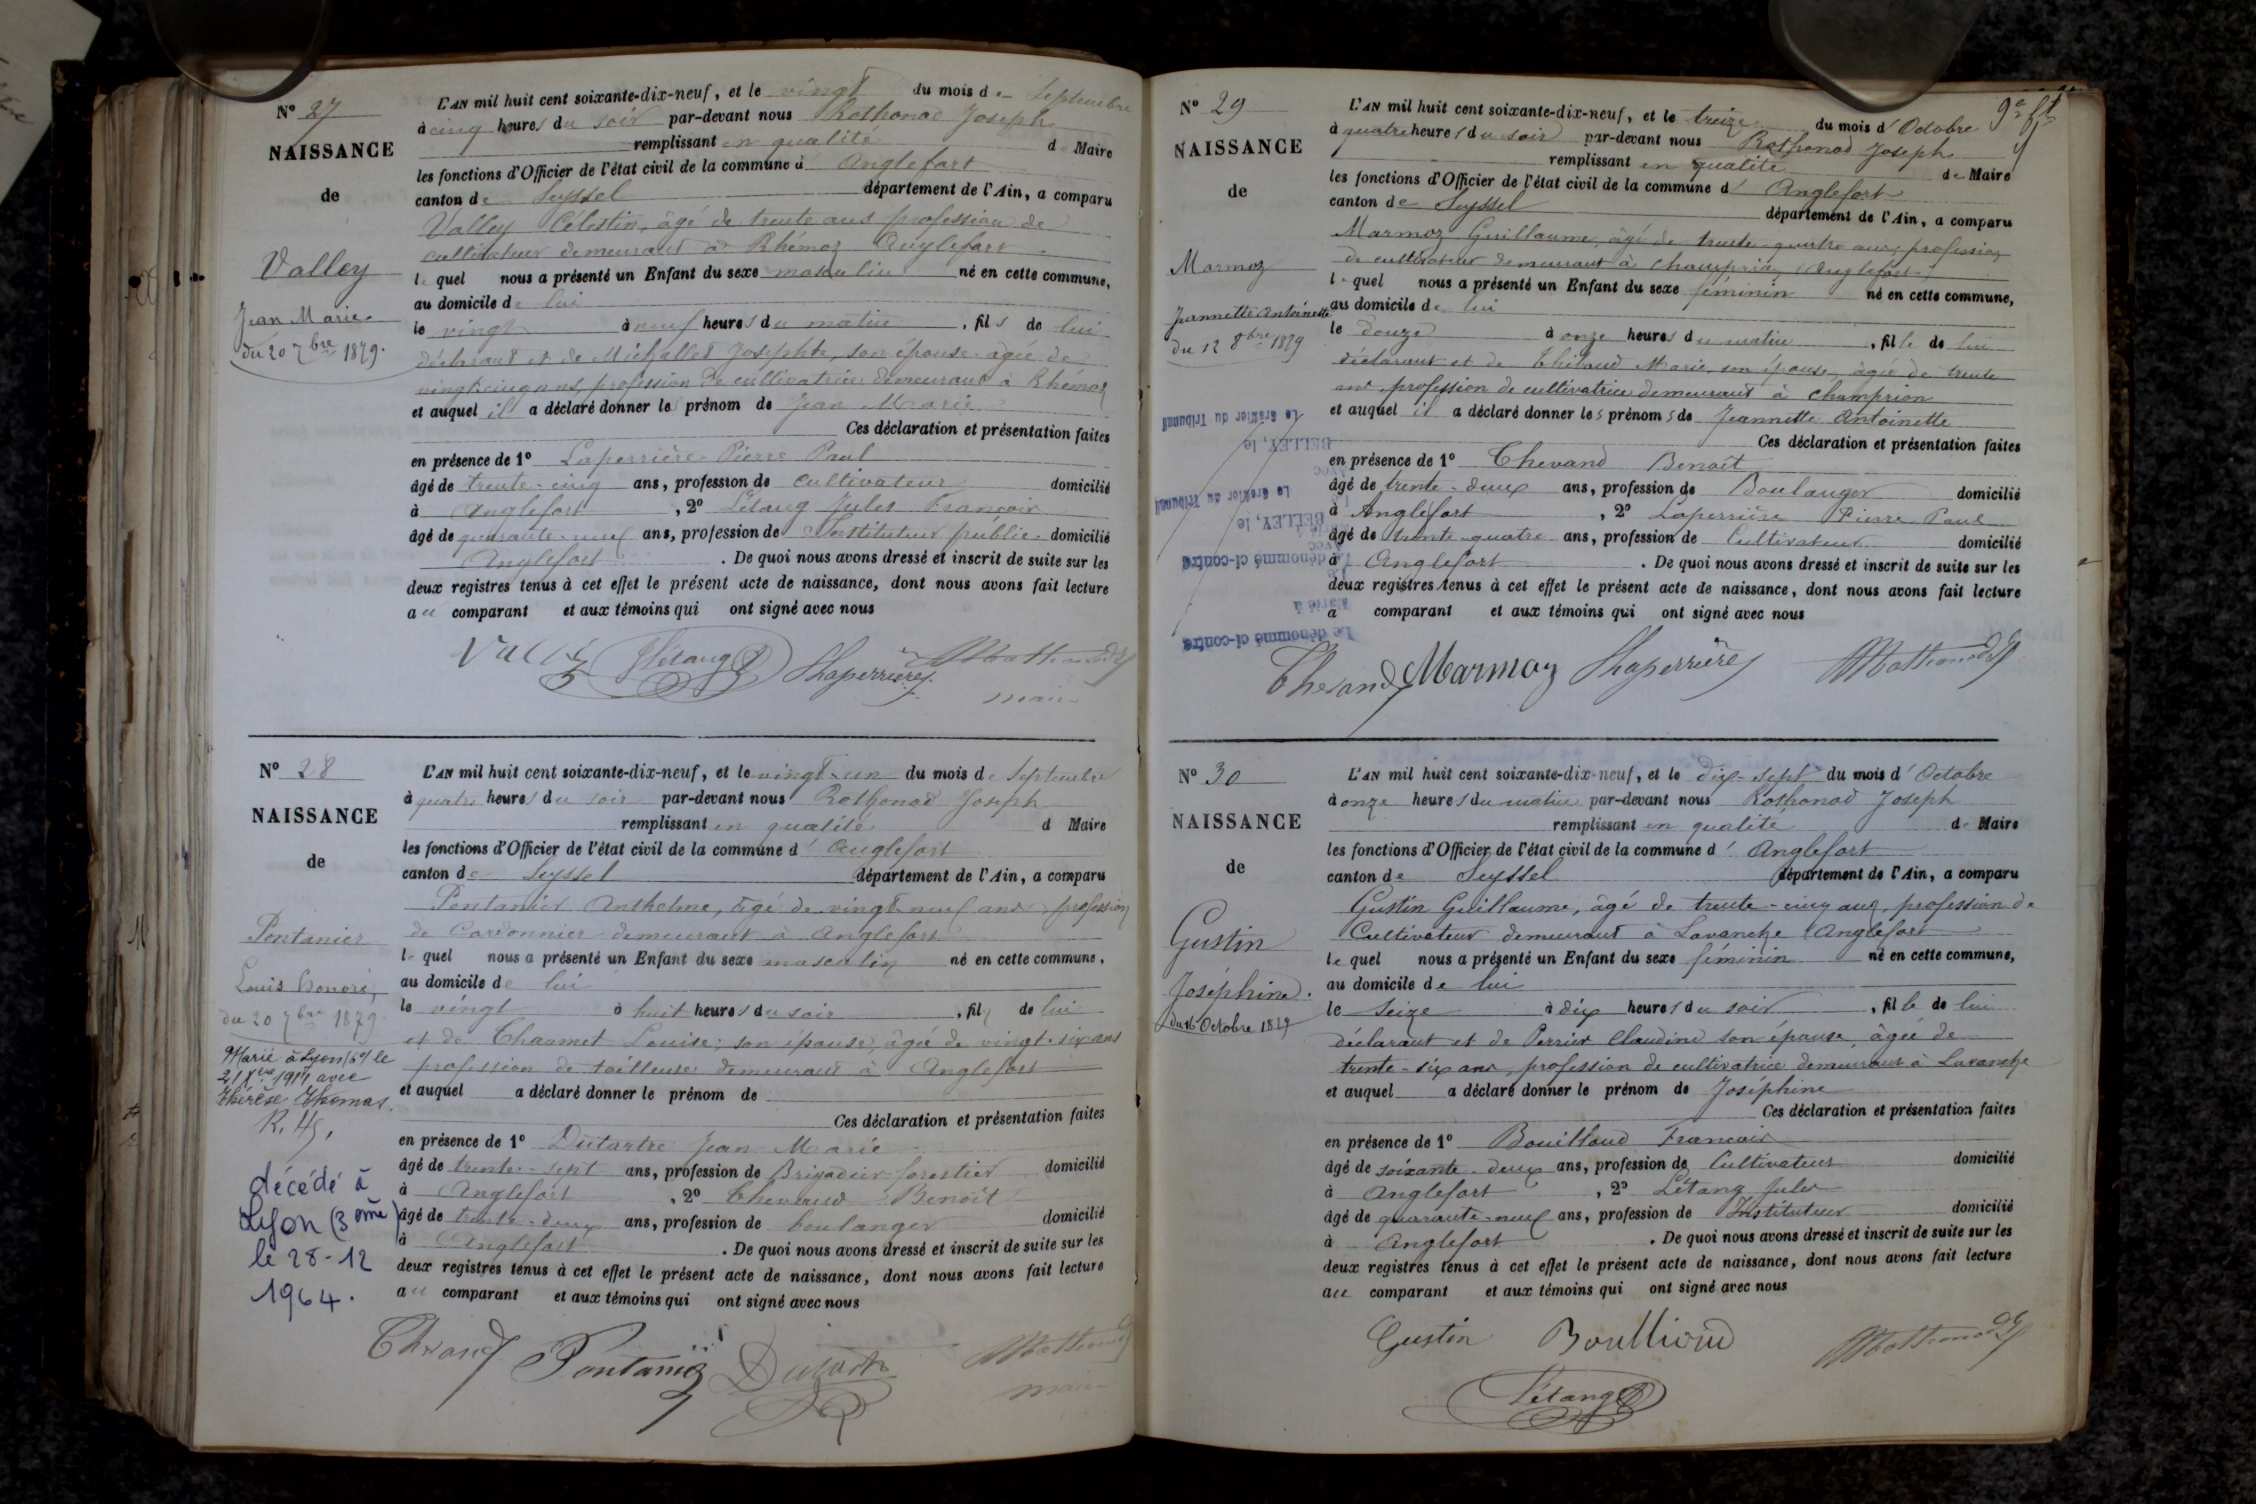 N° 27
NAISSANCE
de
Valley
Jean Marie
du 20 7bre 1879.
L'AN mil huit cent soixante-dix-neuf, et le vingt du mois de Septembre
à cinq heures du soir par-devant nous Rothonod Joseph
remplissant en qualité de Maire
les fonctions d'Officier de l'état civil de la commune d' Anglefort
canton de Seyssel département de l'Ain, a comparu
Valley Célestin, âgé de trente ans profession de
cultivateur demeurant à Rhémoz Anglefort
lequel nous a présenté un Enfant du sexe masculin né en cette commune,
au domicile de lui
le vingt à neuf heures du matin, fils de lui
déclarant et de Michallet Josephte, son épouse âgée de
vingt-cinq ans, profession de cultivatrice demeurant à Rhémoz
et auquel il a déclaré donner les prénom de Jean Marie
Ces déclaration et présentation faites
en présence de 1° Laperrière Pierre Paul
âgé de trente-cinq ans, profession de cultivateur domicilié
à Anglefort, 2° Létang Jules François
âgé de quarante-neuf ans, profession de Instituteur public domicilié
Anglefort. De quoi nous avons dressé et inscrit de suite sur les
deux registres tenus à cet effet le présent acte de naissance, dont nous avons fait lecture
au comparant et aux témoins qui ont signé avec nous
Létang Laperrière Rothonod
maire
N° 28
NAISSANCE
de
Pontanier
Louis Honoré,
du 20 7bre 1879
Marié à Lyon (6e) le
21 Xbre 1911 avec
Thérèse Thomas.
décédé à
Lyon (3ème)
le 28-12
1964.
L'AN mil huit cent soixante-dix-neuf, et le vingt-un du mois de Septembre
à quatre heures du soir par-devant nous Rothonod Joseph
remplissant en qualité d Maire
les fonctions d'Officier de l'état civil de la commune d' Anglefort
canton de Seyssel département de l'Ain, a comparu
Pontanier Anthelme, âgé de vingt-neuf ans profession
de Cordonnier demeurant à Anglefort
lequel nous a présenté un Enfant du sexe masculin né en cette commune,
au domicile de lui
le vingt à huit heures du soir, fils de lui
et de Chaumet Louise, son épouse, âgée de vingt-six ans
profession de tailleuse demeurant à Anglefort
et auquel a déclaré donner le prénom de
Ces déclaration et présentation faites
en présence de 1° Dutartre Jean Marie
âgé de trente-sept ans, profession de Brigadier forestier domicilié
à Anglefort, 2° Chevand Benoît
âgé de trente-deux ans, profession de boulanger domicilié
à Anglefort. De quoi nous avons dressé et inscrit de suite sur les
deux registres tenus à cet effet le présent acte de naissance, dont nous avons fait lecture
au comparant et aux témoins qui ont signé avec nous
Chevand Pontanier Rothonod
maire
N° 29
NAISSANCE
de
Marmoz
Jeannette Antoinette
du 12 8bre 1879
L'AN mil huit cent soixante-dix-neuf, et le treize du mois d'Octobre
à quatre heures du soir par-devant nous Rothonod Joseph
remplissant en qualité de Maire
les fonctions d'Officier de l'état civil de la commune d' Anglefort
canton de Seyssel département de l'Ain, a comparu
Marmoz Guillaume, âgé de trente-quatre ans, profession
de cultivateur demeurant à Champrion Anglefort
lequel nous a présenté un Enfant du sexe féminin né en cette commune,
au domicile de lui
le douze à onze heures du matin, fille de lui
déclarant et de Thibaud Marie, son épouse, âgée de trente
ans profession de cultivatrice demeurant à Champrion
et auquel il a déclaré donner les prénoms de Jeannette Antoinette
Ces déclaration et présentation faites
en présence de 1° Chevand Benoît
âgé de trente-deux ans, profession de Boulanger domicilié
à Anglefort, 2° Laperrière Pierre Paul
âgé de trente-quatre ans, profession de Cultivateur domicilié
à Anglefort. De quoi nous avons dressé et inscrit de suite sur les
deux registres tenus à cet effet le présent acte de naissance, dont nous avons fait lecture
a comparant et aux témoins qui ont signé avec nous
Le dénommé ci-contre
Marié à
avec
BELLEY, le
Le Greffier du Tribunal
Le dénommé ci-contre
BELLEY, le
Le Greffier du Tribunal
Chevand Marmoz Laperrière Rothonod
N° 30
NAISSANCE
de
Gustin
Joséphine.
du 16 Octobre 1879
L'AN mil huit cent soixante-dix-neuf, et le dix-sept du mois d'Octobre
à onze heures du matin par-devant nous Rothonod Joseph
remplissant en qualité de Maire
les fonctions d'Officier de l'état civil de la commune d' Anglefort
canton de Seyssel département de l'Ain, a comparu
Gustin Guillaume, âgé de trente-cinq ans, profession de
Cultivateur demeurant à Lavanche Anglefort
lequel nous a présenté un Enfant du sexe féminin né en cette commune,
au domicile de lui
le Seize à dix heures du soir, fille de lui
déclarant et de Perrier Claudine son épouse, âgée de
trente-six ans, profession de cultivatrice demeurant à Lavanche
et auquel a déclaré donner le prénom de Joséphine
Ces déclaration et présentation faites
en présence de 1° Bouilloud François
âgé de soixante-deux ans, profession de Cultivateur domicilié
à Anglefort, 2° Létang Jules
âgé de quarante-neuf ans, profession de Instituteur domicilié
à Anglefort. De quoi nous avons dressé et inscrit de suite sur les
deux registres tenus à cet effet le présent acte de naissance, dont nous avons fait lecture
au comparant et aux témoins qui ont signé avec nous
Gustin Boullioud Rothonod
Létang